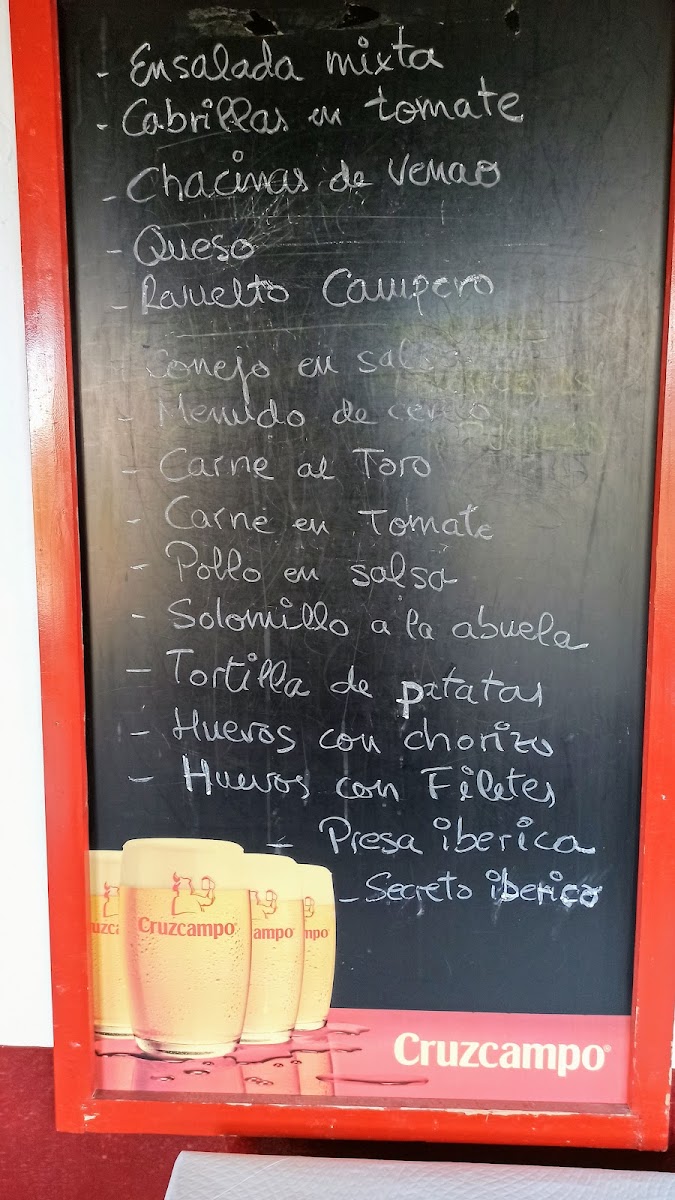 - Ensalada mixta
- Cabrillas en tomate
- Chacinas de Venao
- Queso
- Revuelto Campero
- Conejo en salsa
- Menudo de cerdo
- Carne al Toro
- Carne en Tomate
- Pollo en salsa
- Solomillo a la abuela
- Tortilla de patatas
- Huevos con chorizo
- Huevos con Filetes
- Presa iberica
- Secreto iberico
uzca
Cruzcampo
ampo
mpo
Cruzcampo